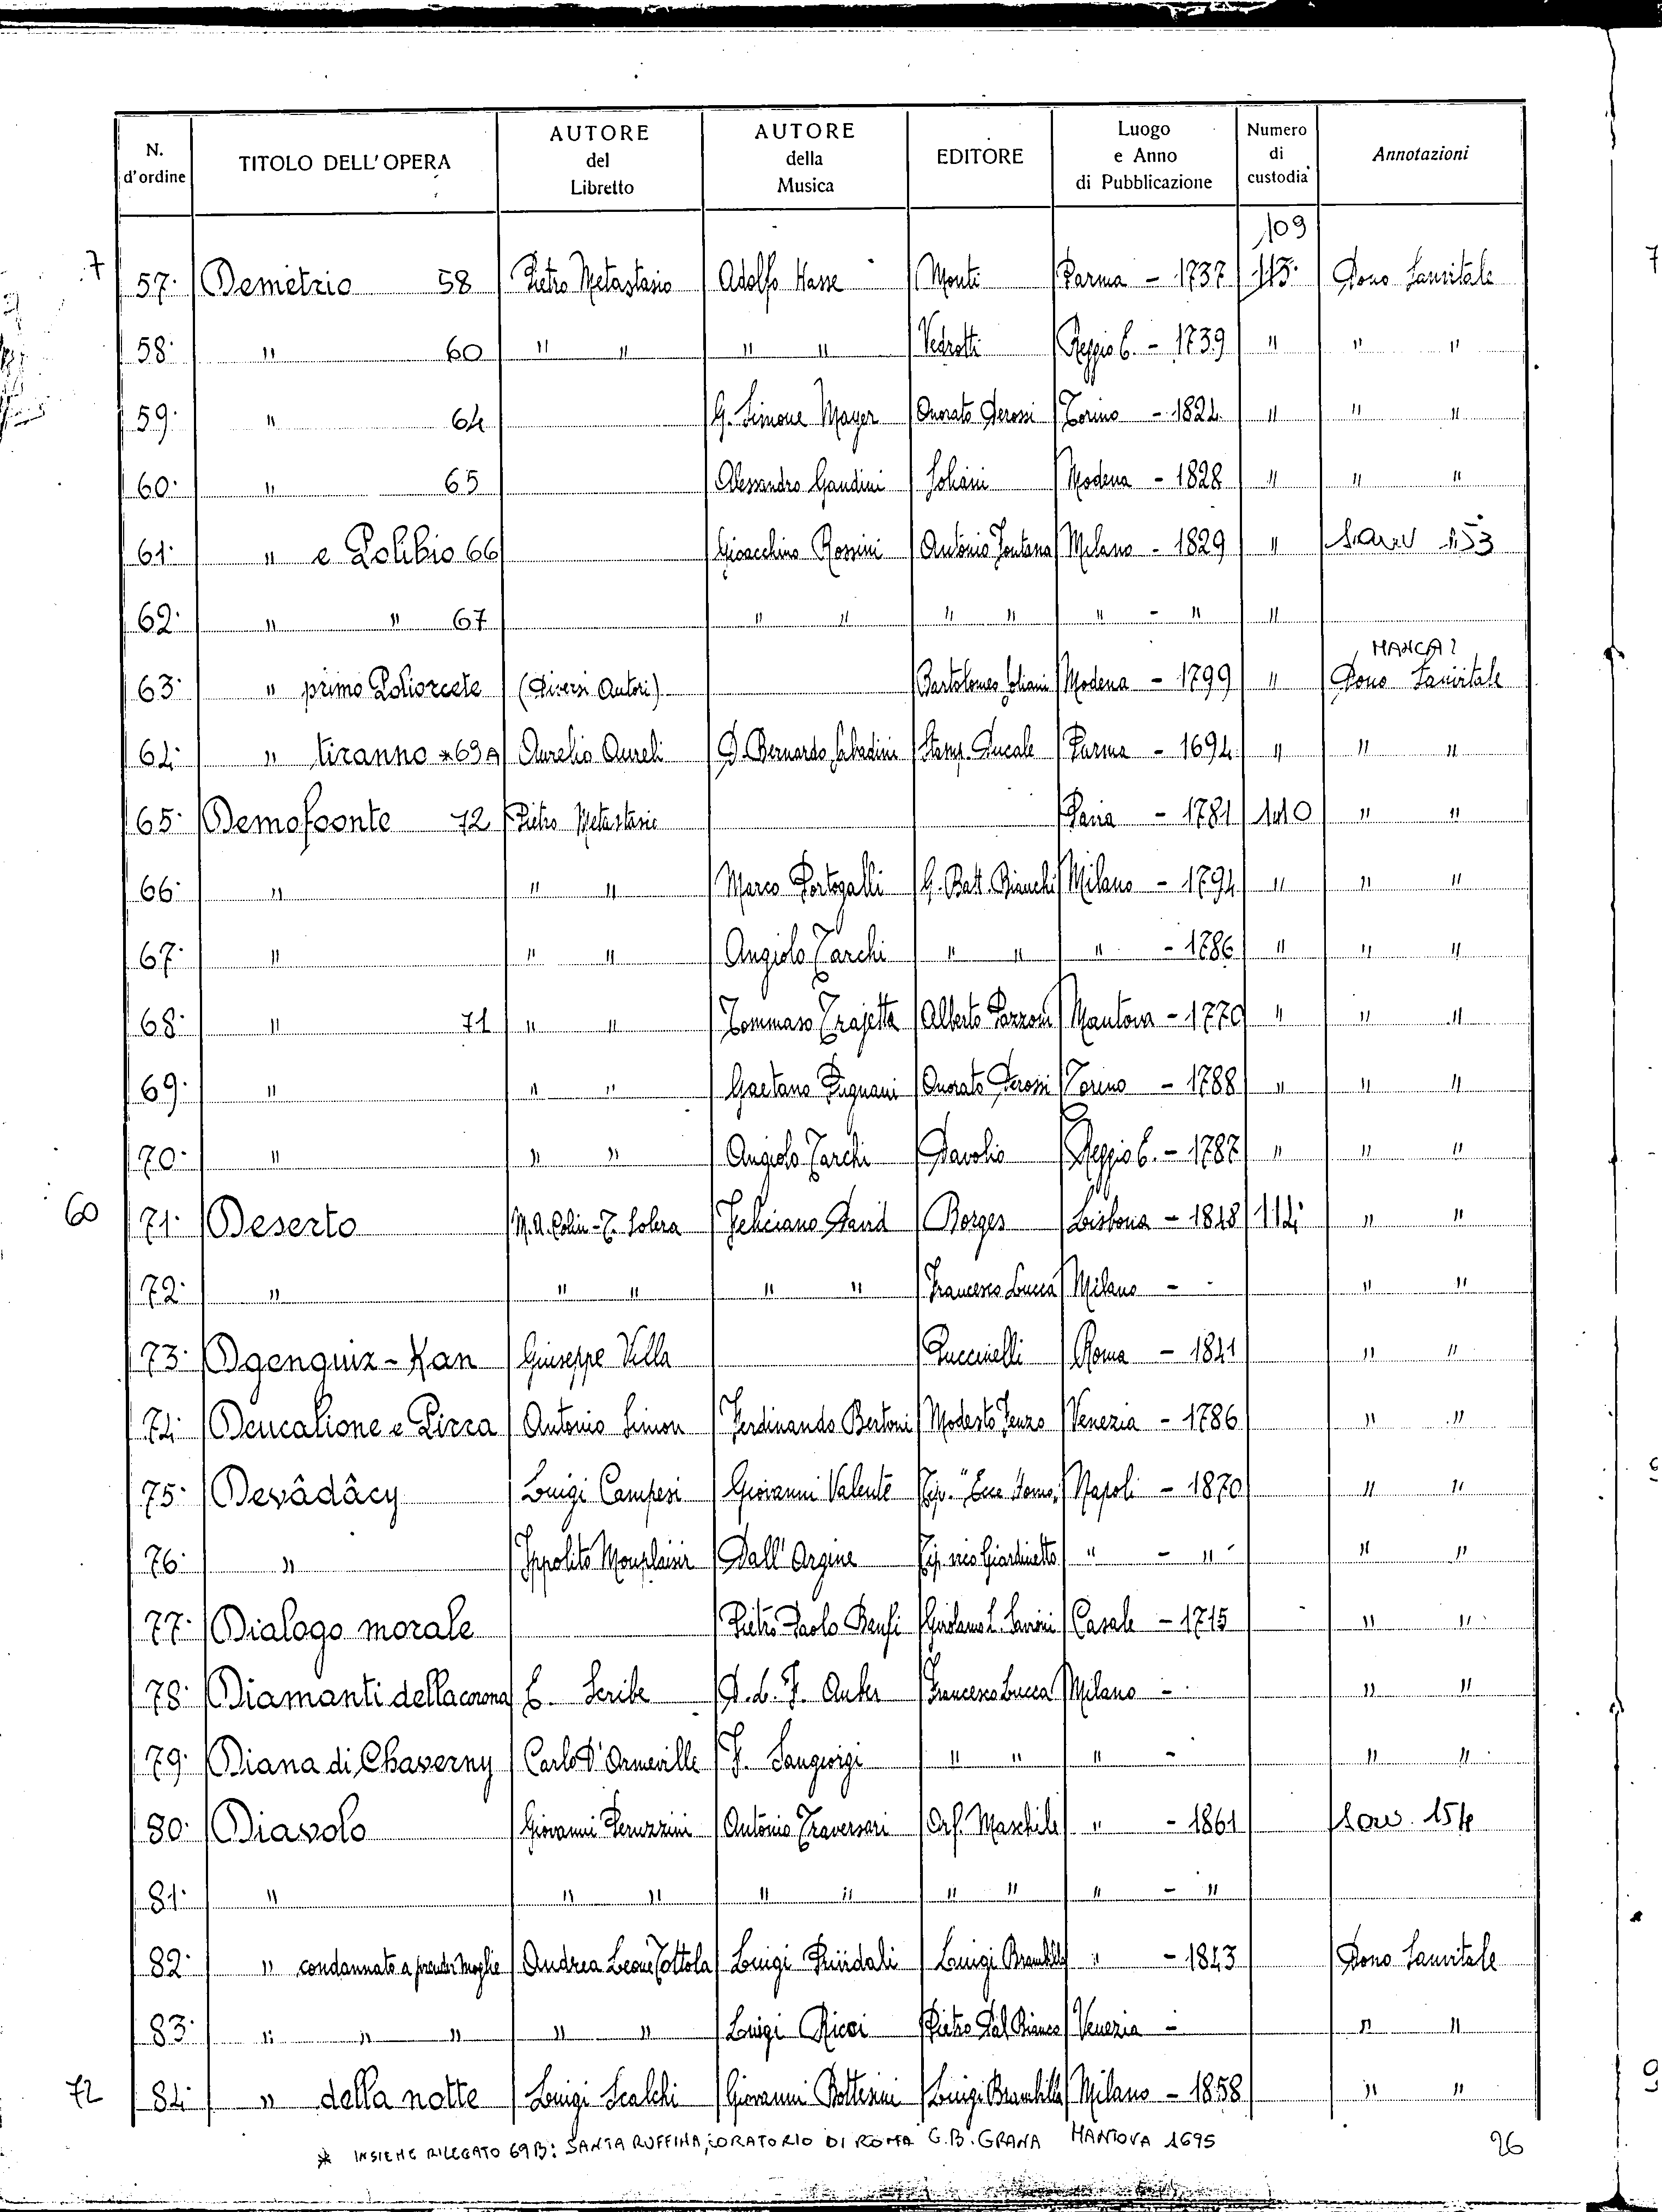 N. d'ordine TITOLO DELL' OPERA AUTORE del Libretto AUTORE della Musica EDITORE Luogo e Anno di Pubblicazione Numero di custodia Annotazioni
109
7 57. Demetrio 58 Pietro Metastasio Adolfo Hasse Monti Parma - 1737 113. Dono Sanvitale
58. " 60 " " " " Vedrotti Reggio E. - 1739 " " "
59. " 64 G. Simone Mayer Onorato Derossi Torino - 1824 " " "
60. " 65 Alessandro Gandini Soliani Modena - 1828 " " "
61. " e Polibio 66 Gioacchino Rossini Antonio Fontana Milano - 1829 " 153
62. " " 67 " " " " " - " "
MANCA?
63. " primo Poliorcete (Diversi Autori) Bartolomeo Soliani Modena - 1799 " Dono Sanvitale
64. " tiranno *69A Aurelio Aureli D. Bernardo Sabadini Stamp. Ducale Parma - 1694 " " "
65. Demofoonte 72 Pietro Metastasio Pavia - 1781 110 " "
66. " " " Marco Portogalli G. Batt. Bianchi Milano - 1794 " " "
67. " " " Angiolo Tarchi " " " - 1786 " " "
68. " 71 " " Tommaso Trajetta Alberto Pazzoni Mantova - 1770 " " "
69. " " " Gaetano Pugnani Onorato Derossi Torino - 1788 " " "
70. " " " Angiolo Tarchi Davolio Reggio E. - 1787 " " "
60 71. Deserto M. A. Colin - T. Solera Feliciano David Borges Lisbona - 1848 114. " "
72. " " " " " Francesco Lucca Milano - " "
73. Dgenquiz-Kan Giuseppe Villa Puccinelli Roma - 1841 " "
74. Deucalione e Pirra Antonio Simon Ferdinando Bertoni Modesto Fenzo Venezia - 1786 " "
75. Devâdâcy Luigi Campesi Giovanni Valente Tip. "Ecce Homo" Napoli - 1870 " "
76. " Ippolito Monplaisir Dall'Argine Tip. vico Giardinetto " - " " "
77. Dialogo morale Pietro Paolo Casale - 1715 " "
78. Diamanti della corona E. Scribe D. L. F. Auber Francesco Lucca Milano - " "
79. Diana di Chaverny Carlo D'Ormeville F. Sangiorgi " " " - " "
80. Diavolo Giovanni Peruzzini Antonio Traversari Orf. Maschile " - 1861 154
81. " " " " " " " " - "
82. " condannato a prender moglie Andrea Leone Tottola Luigi Luigi Brambilla " - 1843 Dono Sanvitale
83. " " " " " Luigi Ricci Pietro Dal Bianco Venezia - " "
72 84. " della notte Luigi Scalchi Giovanni Bottesini Luigi Brambilla Milano - 1858 " "
* INSIEME RILEGATO 69B: SANTA RUFFINA, ORATORIO DI ROMA G.B. GRANA MANTOVA 1695
26